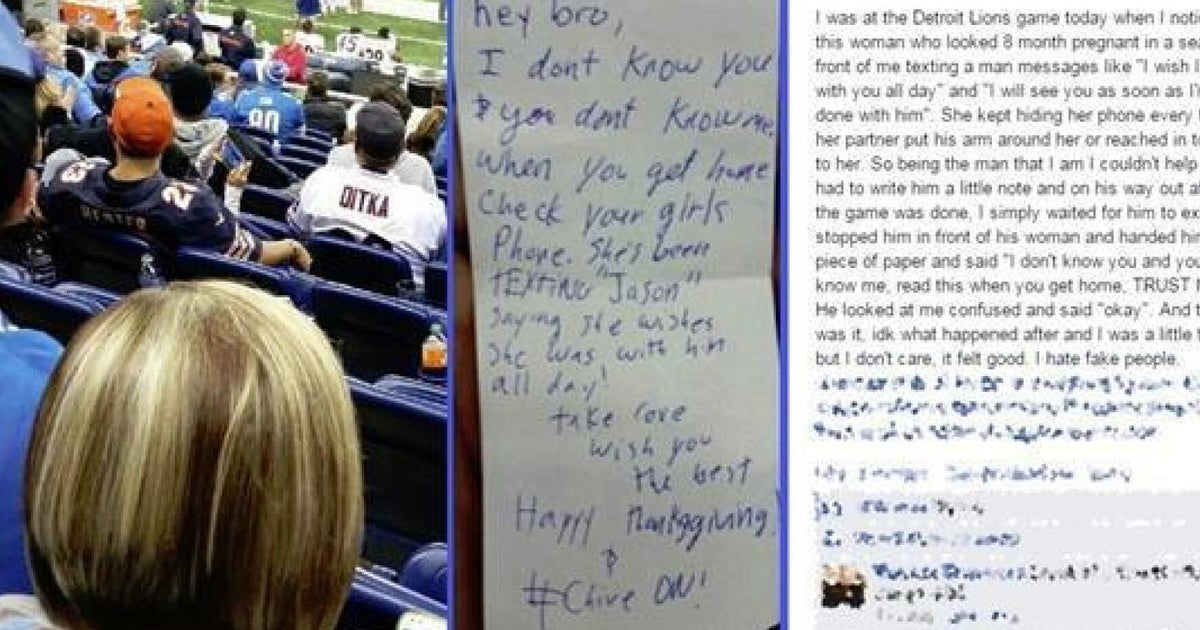 HESTER
DITKA
hey bro,
I dont know you
& you dont know me.
when you get home
Check your girls
Phone. She's been
TEXTING "Jason"
Saying she wishes
she was with him
all day!
take care
wish you
the best
Happy Thanksgiving!
&
#Chive ON!
I was at the Detroit Lions game today when I noti
this woman who looked 8 month pregnant in a se
front of me texting a man messages like "I wish I
with you all day" and "I will see you as soon as I'
done with him". She kept hiding her phone every
her partner put his arm around her or reached in t
to her. So being the man that I am I couldn't help
had to write him a little note and on his way out a
the game was done, I simply waited for him to ex
stopped him in front of his woman and handed hi
piece of paper and said "I don't know you and you
know me, read this when you get home, TRUST M
He looked at me confused and said "okay". And t
was it. idk what happened after and I was a little
but I don't care, it felt good. I hate fake people.